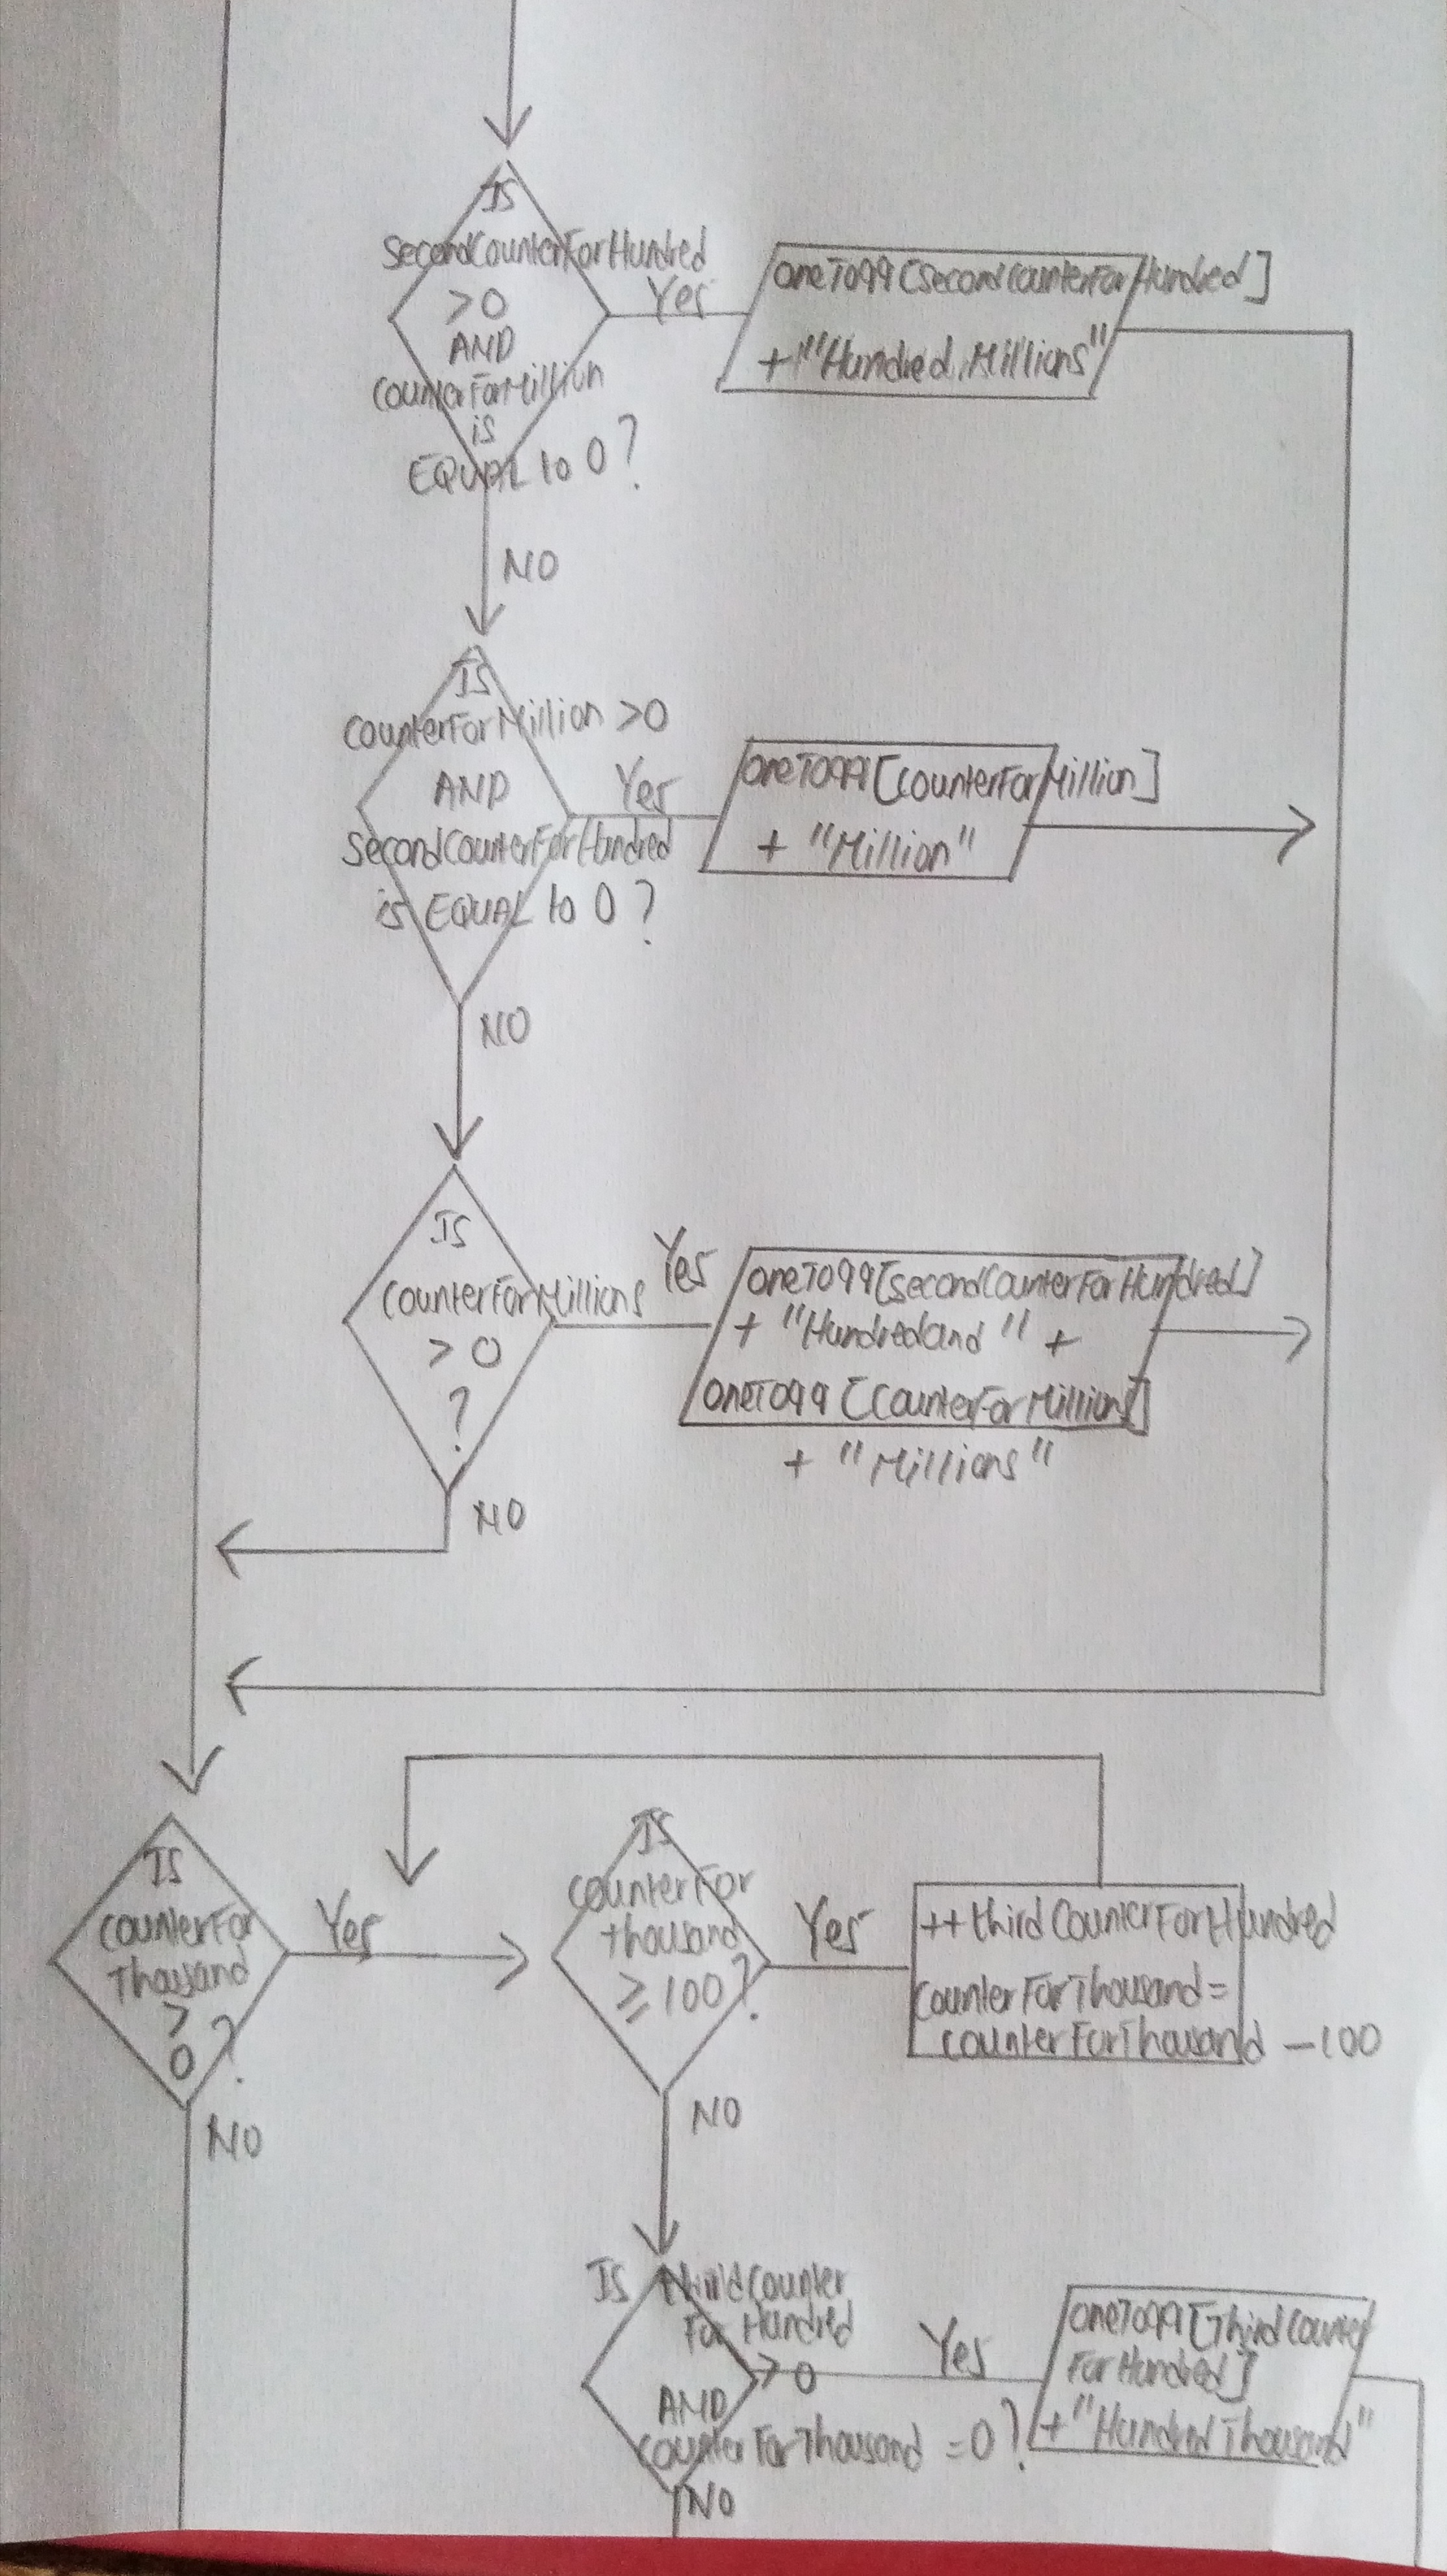 IS
SecondCounterForHundred
>0
AND
CounterForMillion
is
EQUAL to 0?
Yes
oneTo99[secondCounterForHundred]
+"Hundred Millions"
NO
IS
CounterForMillion >0
AND
SecondCounterForHundred
is EQUAL to 0?
Yes
oneTo99[counterForMillion]
+ "Million"
NO
IS
CounterForMillions
> 0
?
Yes
oneTo99[secondCounterForHundred]
+ "Hundred and " +
oneTo99[CounterForMillions]
+ "Millions"
NO
IS
CounterFor
Thousand
>
0?
Yes
IS
CounterFor
thousand
≥100?
Yes
++thirdCounterForHundred
CounterForThousand=
counterForThousand -100
NO
NO
IS thirdCounter
For Hundred
>0
AND
CounterForThousand =0?
Yes
oneTo99[ThirdCounter
ForHundred]
+"Hundred Thousand"
NO